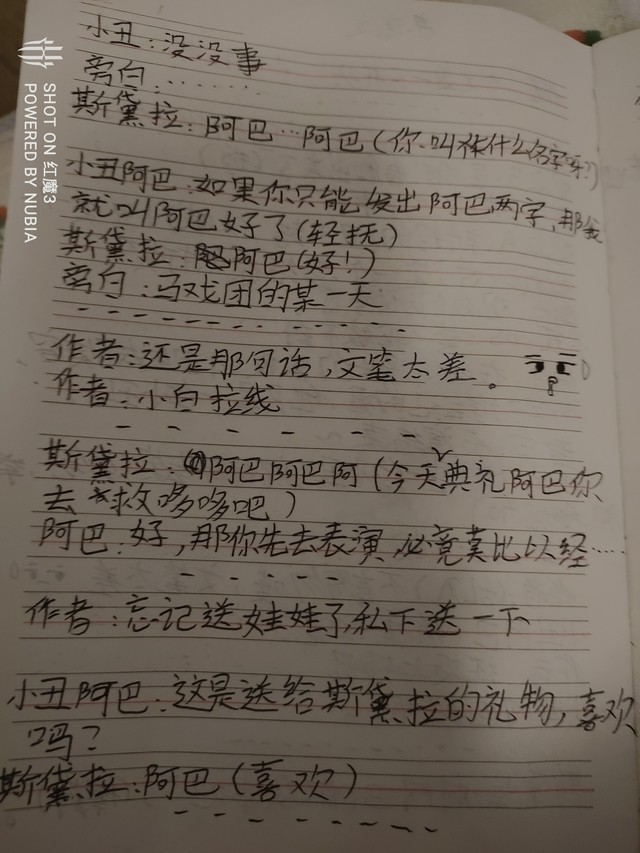 小丑：没没事
旁白：........
斯黛拉：阿巴…阿巴（你叫什么名字呀？）
小丑阿巴：如果你只能发出阿巴两字，那我
就叫阿巴好了（轻抚）
斯黛拉：阿巴（好！）
旁白：马戏团的某一天
作者：还是那句话，文笔太差。
作者：小白拉线
斯黛拉：阿巴阿巴阿（今天典礼阿巴你
去救哆哆吧）
阿巴：好，那你先去表演，必竟莫比以经……
作者：忘记送娃娃了，私下送一下
小丑阿巴：这是送给斯黛拉的礼物，喜欢
吗？
斯黛拉：阿巴（喜欢）
SHOT ON 红魔3
POWERED BY NUBIA